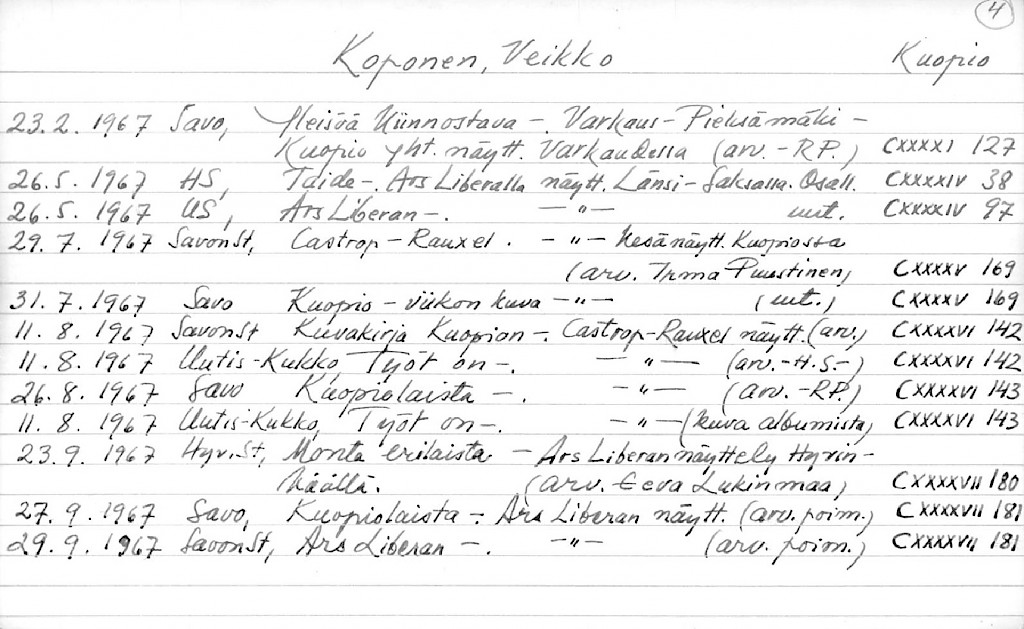 4
Koponen, Veikko Kuopio
23.2.1967 Savo, Yleisöä kiinnostava -. Varkaus-Pieksämäki-
Kuopio yht. näytt. Varkaudessa (arv. - RP.) CXXXXI 127
26.5.1967 HS, Taide-. Ars Liberalla näytt. Länsi-Saksassa. Osall. CXXXXIV 38
26.5.1967 US, Ars Liberan -. -"- uut. CXXXXIV 97
29.7.1967 SavonSt, Castrop-Rauxel. -"- Kesänäytt. Kuopiossa
(arv. Irma Puustinen) CXXXXV 169
31.7.1967 Savo Kuopio - viikon kuva -"- (uut.) CXXXXV 169
11.8.1967 SavonSt Kuvakirja Kuopion -. Castrop-Rauxel näytt. (arv.) CXXXXVI 142
11.8.1967 Uutis-Kukko, Työt on -. -"- (arv. -H.S.-) CXXXXVI 142
26.8.1967 Savo Kuopiolaista -. -"- (arv. -RP.) CXXXXVI 143
11.8.1967 Uutis-Kukko, Työt on -. -"- (kuva albumista) CXXXXVI 143
23.9.1967 Hyv.St, Monta erilaista - Ars Liberan näyttely Hyvin-
käällä. (arv. Eeva Lukinmaa) CXXXXVII 180
27.9.1967 Savo, Kuopiolaista -. Ars Liberan näytt. (arv. poim.) CXXXXVII 181
29.9.1967 SavonSt, Ars Liberan -. -"- (arv. poim.) CXXXXVII 181